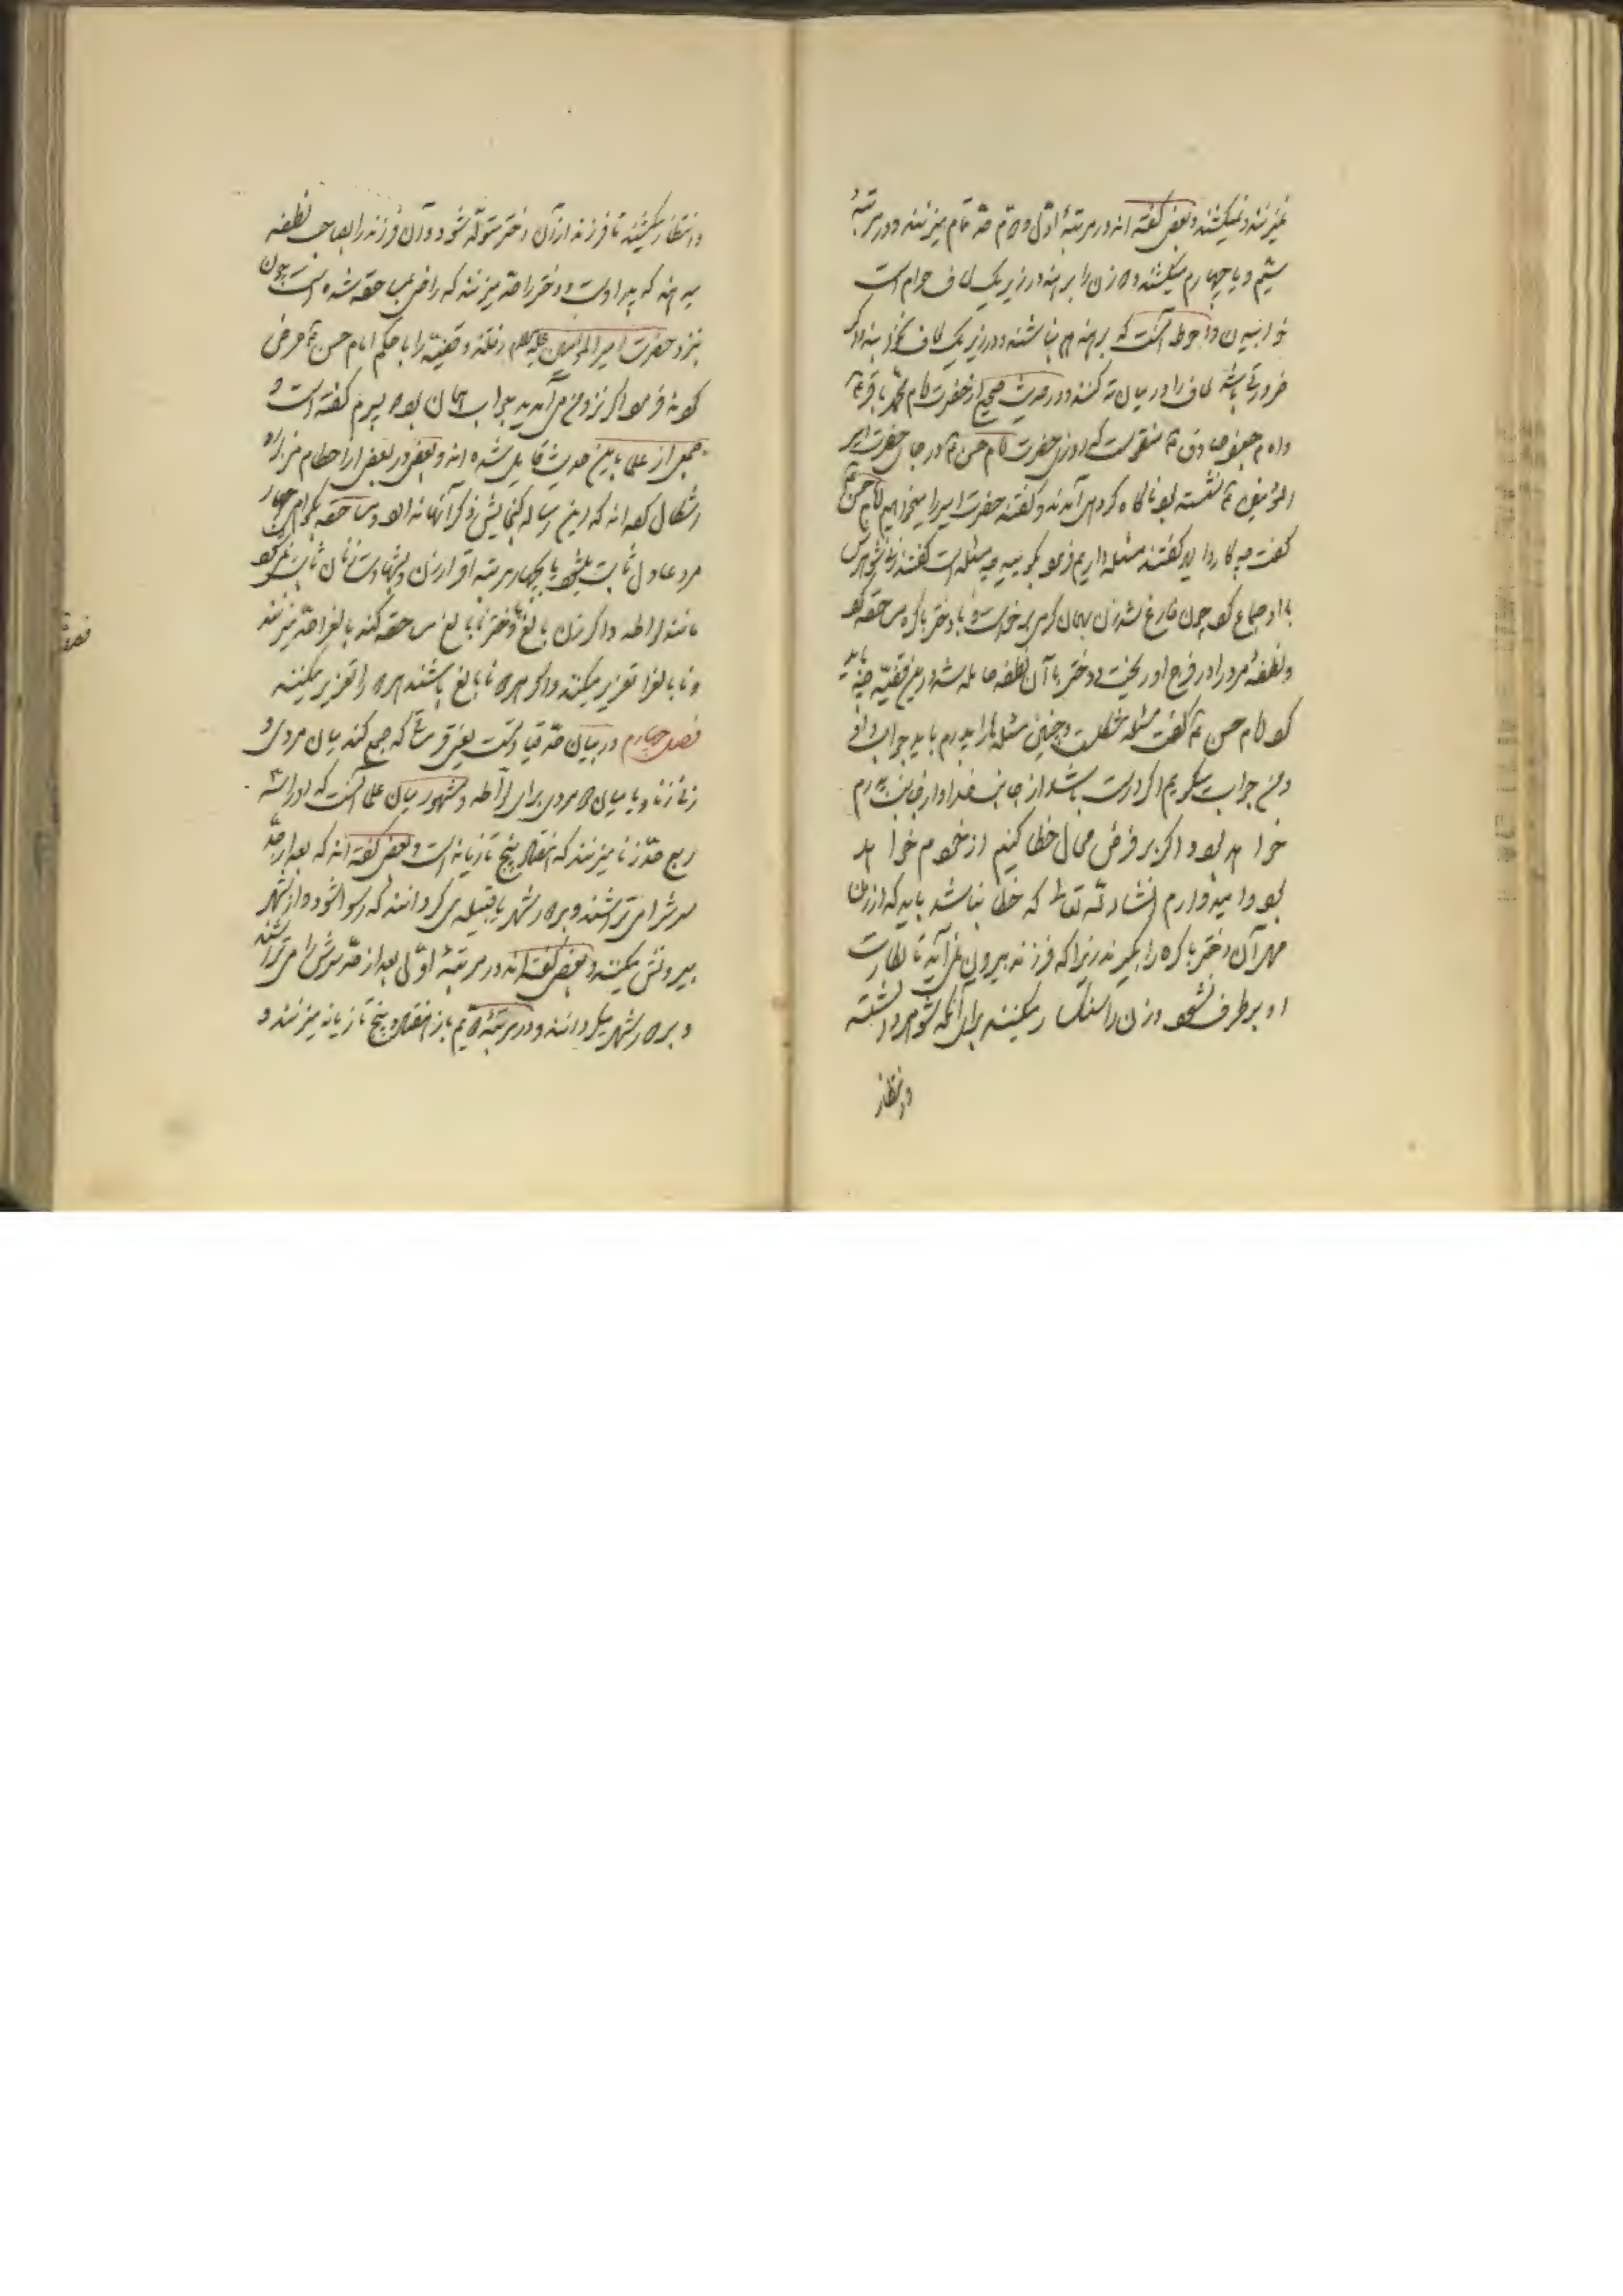 نمیزنند و نمیکشند و بعضی گفته اند در مرتبهٔ اوّل و دوّم حدّ تمام میزنند و در مرتبهٔ
سیّم و یا چهارم میکشند و دو زن را برهنه در زیر یک لحاف حرام است
خوابیدن و احوط آنست که برهنه هم نباشند و در زیر یک لحاف نخوابند و اگر
ضرورتی باشد لحاف را در میان ته کنند و در حدیث صحیح از حضرت امام محمّد باقر ع
و امام جعفر صادق ع منقولست که روزی حضرت امام حسن ع در جای حضرت امیر
المؤمنین ع نشسته بود ناگاه گروهی آمدند و گفتند حضرت امیر را میخواهیم امام حسن ع
گفت چه کار دارید گفتند مسئله داریم فرمود بگویید چه مسئله است گفتند زنی شوهرش
با او جماع کرد چون فارغ شد زن بهمان گرمی برخواست و با دختر باکره مساحقه کرد
و نطفهٔ مرد را در فرج او ریخت و دختر با آن نطفه حامله شد در این قضیّه چه باید
کرد امام حسن ع گفت مسئله مشکلست و چنین مسئله ها را پدرم باید جواب داد
و من جواب میگویم اگر درست باشد از جانب خدا و از جانب پدرم
خواهد بود و اگر بر فرض محال خطا کنیم از خودم خواهد
بود و امیدوارم انشاء الله تعالی که خطا نباشد باید که از زن
مهر آن دختر باکره را بگیرند زیرا که فرزند بیرون نمی آید تا بکارت
او برطرف نشود و زن را سنگسار میکنند برای آنکه شوهر داشته
و انتظار
و انتظار میکشند تا فرزند از آن دختر متولّد شود و آن فرزند را بصاحب نطفه
میدهند که پدر اوست و دختر را حدّ میزنند که راضی بمساحقه شده است چون
بنزد حضرت امیر المؤمنین علیه السلام رفتند و قضیّه را با حکم امام حسن ع عرض
کردند فرمود اگر نزد من می آمدید جواب همان بود که پسرم گفته است و
جمعی از علما باین حدیث قایل شده اند و بعضی در بعضی از احکام مزبوره
اشکال کرده اند که این رساله گنجایش ذکر آنها ندارد و مساحقه بگواهی چهار
مرد عادل ثابت میشود یا بچهار مرتبه اقرار زن و بشهادت زنان ثابت نمیشود
مانند لواطه و اگر زن بالغ و دختر نابالغ مساحقه کنند بالغ را حدّ میزنند
و نابالغ را تعزیر میکنند و اگر هر دو نابالغ باشند هر دو را تعزیر میکنند
فصل چهارم در بیان حدّ قیادتست یعنی قرمساقی که جمع کند میان مردی و
زنی از برای زنا و یا میان دو مردی برای لواطه و مشهور میان علما آنست که او را سه
ربع حدّ زنا میزنند که هفتاد و پنج تازیانه است و بعضی گفته اند که بعد از حدّ
سرش را می تراشند و بر دور شهر یا قبیله می گردانند که رسوا شود و از شهر
بیرونش میکنند و بعضی گفته اند در مرتبهٔ اوّل بعد از حدّ سرش را می تراشند
و بر دور شهر میگردانند و در مرتبهٔ دوّیم باز هفتاد و پنج تازیانه میزنند و